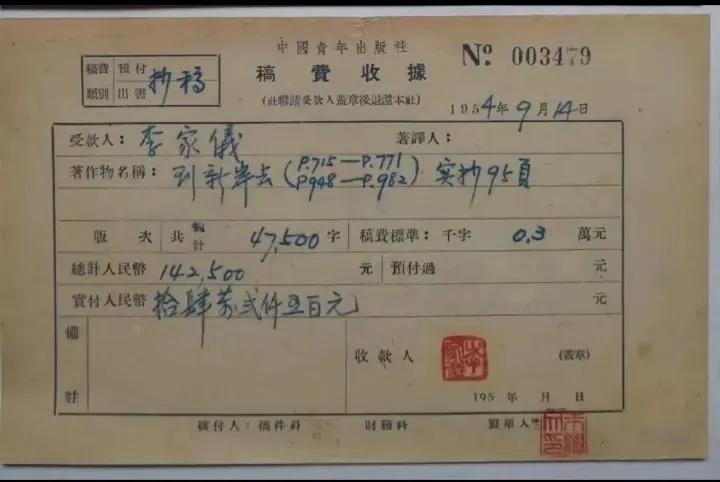 中國青年出版社
稿費收據
(此聯請受款人蓋章後退還本社)
№ 003479
稿費類別 預付 出書 抄稿
1954年9月14日
受款人：李家儀 著譯人：
著作物名稱：到新岸去 (P.715—P.771 P948—P.982) 实抄95頁
版 次 共 計 47,500 字 稿費標準：千字 0.3 萬元
總計人民幣 142,500 元 預付過 元
實付人民幣 拾肆萬弍仟五百元 元
備註
收款人 (蓋章)
195 年 月 日
稿件科 財務科 製單人